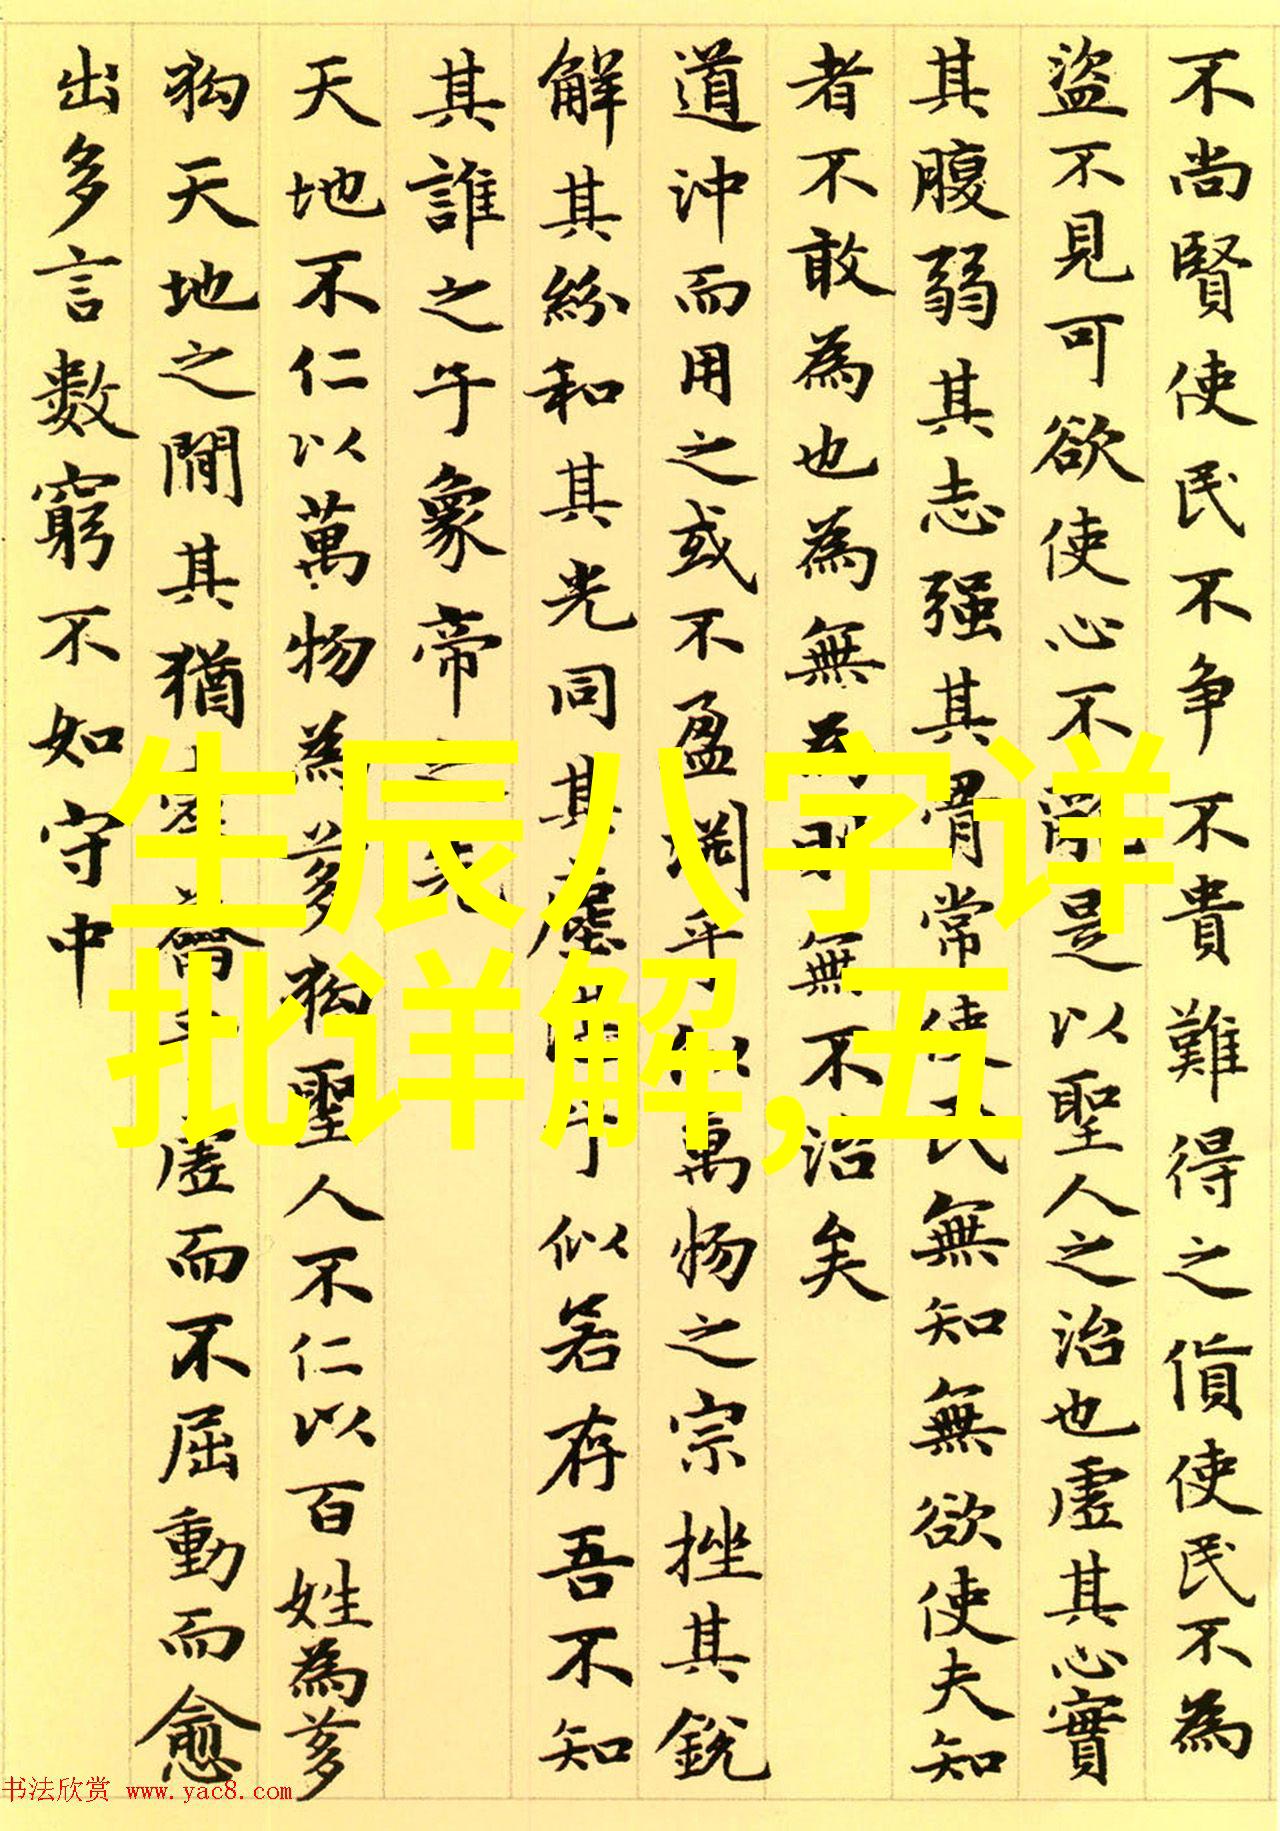 不尚賢使民不争不貴難得之貨使民不為
盜不見可欲使心不亂是以聖人之治也虛其心實
其腹弱其志强其骨常使民無知無欲使夫知
者不敢為也為無為則無不治矣
道沖而用之或不盈淵乎似萬物之宗挫其銳
解其紛和其光同其塵湛乎似若存吾不知
其誰之子象帝之先
天地不仁以萬物為芻狗聖人不仁以百姓為芻
狗天地之間其猶橐籥乎虛而不屈動而愈
出多言數窮不如守中
生辰八字详
批详解,五
书法欣赏 www.yac8.com